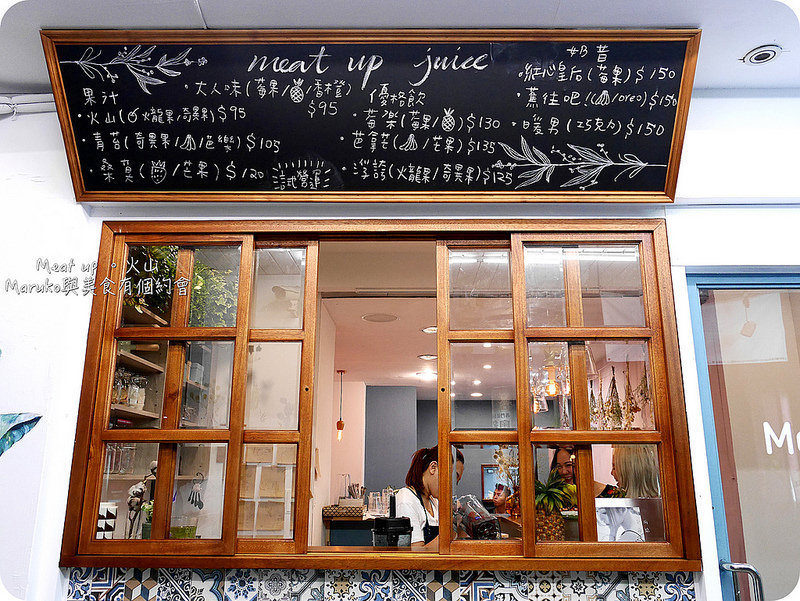 meat up juice
果汁
・火山(🍎/火龍果/奇異果)$95
・青苔(奇異果/🍌/芭樂)$105
・桑莫(🍓/芒果)$120
・大人味(莓果/🍍/香橙)
$95
試營運
優格飲
・莓桀(莓果/🍍)$130
・芭拿花(🍌/芒果)$135
・浮誇(火龍果/奇異果)$125
奶昔
・紅心皇后(莓果)$150
・蕉往吧!(🍌/oreo)$150
・暖男(巧克力)$150
Meat up。火山
Maruko與美食有個約會
M